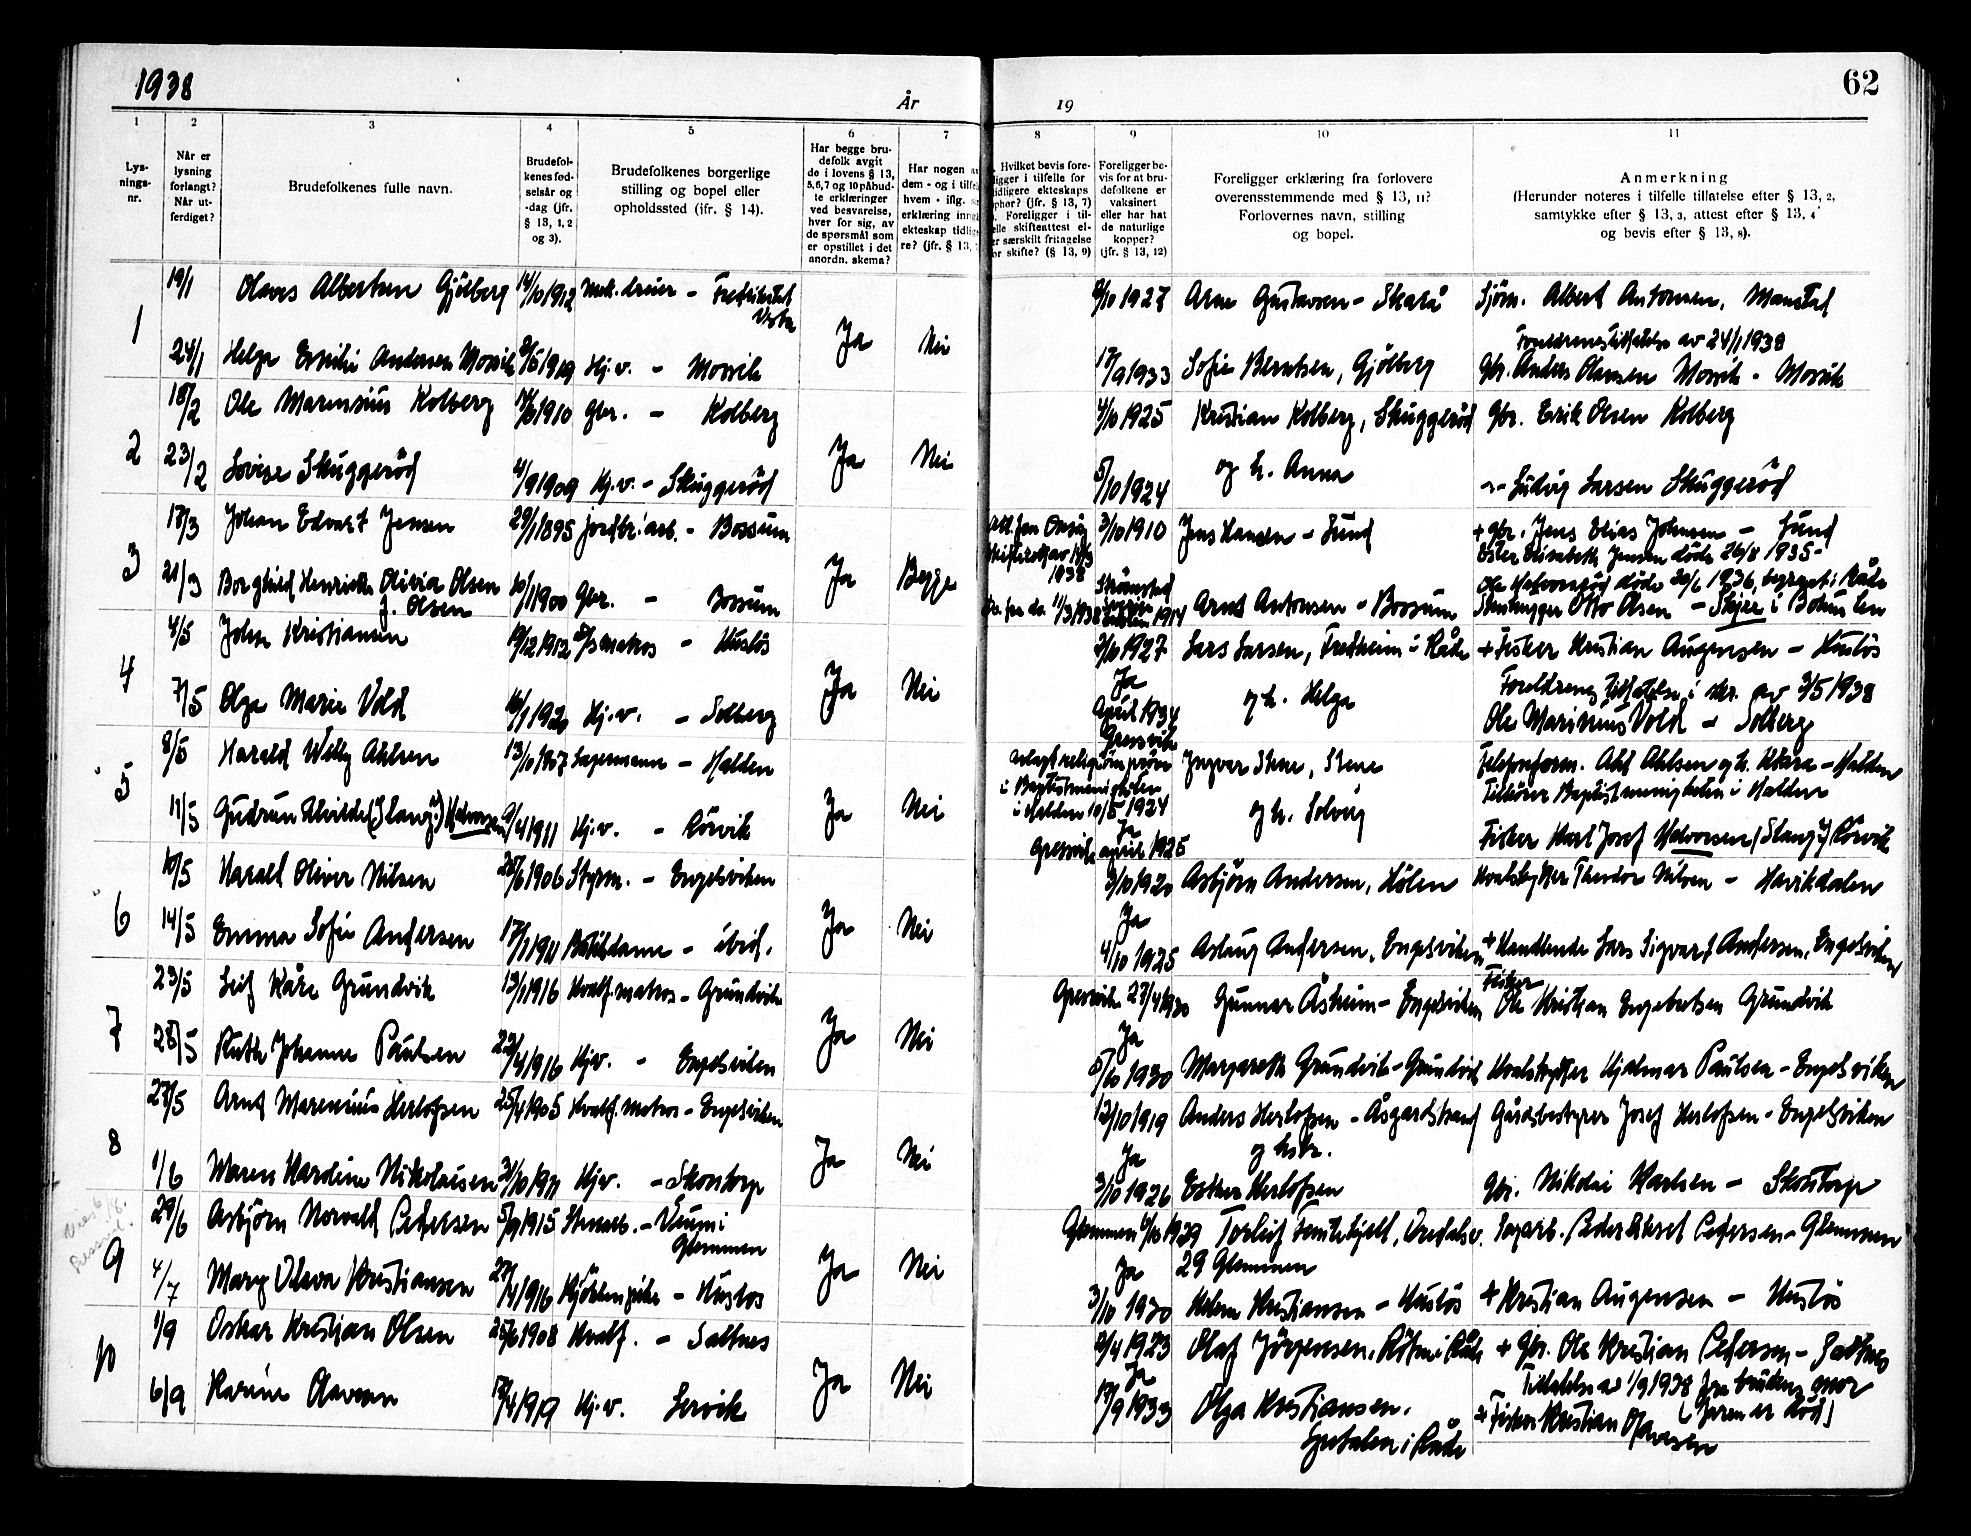 1938
År
19
62
1 2 3 4 5 6 7 8 9 10 11
Lys-
nings-
nr.
Når er
lysning
forlangt?
Når ut-
ferdiget?
Brudefolkenes fulle navn.
Brudefol-
kenes fød-
selsår og
-dag (jfr.
§ 13, 1, 2
og 3).
Brudefolkenes borgerlige
stilling og bopel eller
opholdssted (jfr. § 14).
Har begge bru-
defolk avgit
de i lovens § 13,
5,6,7 og 10 påbud-
te erklæringer
ved besvarelse,
hver for sig, av
de spørsmål som
er opstillet i det
anordn. skema?
Har nogen
dem - og i tilfel
hvem - iflg.
erklæring inng
ekteskap tidlig
re? (jfr. § 13,
Hvilket bevis fore-
ligger i tilfelle for
idligere ekteskaps
phør? (jfr. § 13, 7)
Foreligger i til-
elle skifteattest el-
er særskilt fritagelse
or skifte? (§ 13, 9)
Foreligger be-
vis for at bru-
defolkene er
vaksinert
eller har hat
de naturlige
kopper?
(jfr. § 13, 12)
Foreligger erklæring fra forlovere
overensstemmende med § 13, 11?
Forlovernes navn, stilling
og bopel.
Anmerkning
(Herunder noteres i tilfelle tillatelse efter § 13, 2,
samtykke efter § 13, 3, attest efter § 13, 4
og bevis efter § 13, 8).
1 19/1 Olaves Albertsen Gjölberg 14/10 1912 Mek. dreier - Fredrikstad
Ja Nei
/10 1927 Arne Gustavsen - Skarå Sjöm. Albert Antonsen, Manstad
Foreldrenes tillatelse av 24/1 1938
24/1 Helga Emilie Andersen Morvik /5 1919 Hj.v. - Morvik
17/9 1933 Sofie Berntsen, Gjölberg Gbr. Anders Olaussen Morvik - Morvik
2 18/2 Ole Marensius Kolberg 1910 Gbr. - Kolberg
Ja Nei
4/10 1925 Kristian Kolberg, Skuggeröd Gbr. Erik Olsen Kolberg
23/2 Lovise Skuggeröd 4/9 1909 Hj.v. - Skuggeröd
5/10 1924 og h. Anna Ludvig Larsen Skuggeröd
3 17/3 Johan Edvart Jensen 29/1 1895 jordbr. arb. - Bossum
Ja Begge
3/10 1910 Jens Hansen - Lund + Gbr. Jens Elias Johnsen - Lund
Ester Elisabeth Jensen döde 26/8 1935 -
21/3 Borghild Henriette Olivia Olsen
f. Olsen
10/1 1900 Gbr. - Bossum
1914 Arnt Antonsen - Bossum
döde 20/6 1936, begravet i Råde
Stenhugger Otto Olsen - Skjee i Bohuslen
4 4/5 Johan Kristiansen 19/12 1912 matros - Huslös
Ja Nei
/10 1927 Lars Larsen, Fredheim i Råde + Fisker Kristian Augensen - Huslös
7/5 Olga Marie Vold 16/1 1920 Hj.v. - Solberg
Ja
April 1934
Gressvik
og h. Helga
Foreldrenes tillatelse i skr. av 3/5 1938
Ole Marinius Vold - Solberg
5 8/5 Harald Willy Ahlsen 13/10 1907 Lagermann - Halden
Ja Nei
i Baptistmenigheten
i Halden 10/5 1924
Ingvar Stene, Stene Telefonform. Ahlsen og h. Klara - Halden
Tilhörer Baptistmenigheten i Halden
11/5 Gudrun Alvilde (Slang?) Halvorsen /4 1911 Hj.v. - Rörvik
Ja
Gressvik april 1925
og h. Solveig
Fisker Karl Josef Halvorsen (Slang?) Rörvik
6 10/5 Harald Oliver Nilsen 1906 Styrm. - Engelsviken
Ja Nei
3/10 1920 Asbjörn Andersen, Hölen Hvalskytter Theodor Nilsen - Havikdalen
14/5 Emma Sofie Andersen 17/1 1911 Butikdame - ibid.
Ja
4/10 1925 Aslaug Andersen, Engelsviken + Handlende Lars Sigvart Andersen, Engelsviken
7 23/5 Leif Kåre Grundvik 13/1 1916 Hvalf. matros - Grundvik
Ja Nei
Gressvik 27/4 1930 Gunnar Åsheim - Engelsviken Fisker Ole Kristian Engebretsen Grundvik
28/5 Ruth Johanne Paulsen 22/4 1916 Hj.v. - Engelsviken
Ja
5/10 1930 Margareth Grundvik - Grundvik Hvalskytter Hjalmar Paulsen - Engelsviken
8 27/5 Arnt Marensius Herlofsen 25/4 1905 Hvalf. matros - Engelsviken
Ja Nei
12/10 1919 Anders Herlofsen - Åsgardstrand Gårdbestyrer Josef Herlofsen - Engelsviken
Ja
og hstr.
1/6 Maren Hardine Nikolaisen 31/10 1911 Hj.v. - Skontorp
3/10 1926 Esther Herlofsen Gbr. Nikolai Karlsen - Skontorp
9 29/6 Asbjörn Norvald Pedersen 5/9 1915 Stenarb. - Veum i
Glemmen
Ja Nei
Glemmen 6/10 1929 Torleif Femtehjell,
29 Glemmen
Pedersen - Glemmen
4/7 Mary Olava Kristiansen 27/4 1916 Kjökkenpike - Huslös
Ja
3/10 1930 Helene Kristiansen - Huslös + Kristian Augensen - Huslös
10 1/9 Oskar Kristian Olsen 25/6 1908 Hvalf. - Saltnes
Ja Nei
/4 1923 Olaf Jörgensen, i Råde + Gbr. Ole Kristian Pedersen - Saltnes
Ja
Tillatelse av 1/9 1938 fra brudens mor
(faren er död)
6/9 Karine Olavesen /4 1919 Hj.v. Lervik
17/9 1933 Olga Kristiansen,
i Råde
Fisker Kristian Olavesen